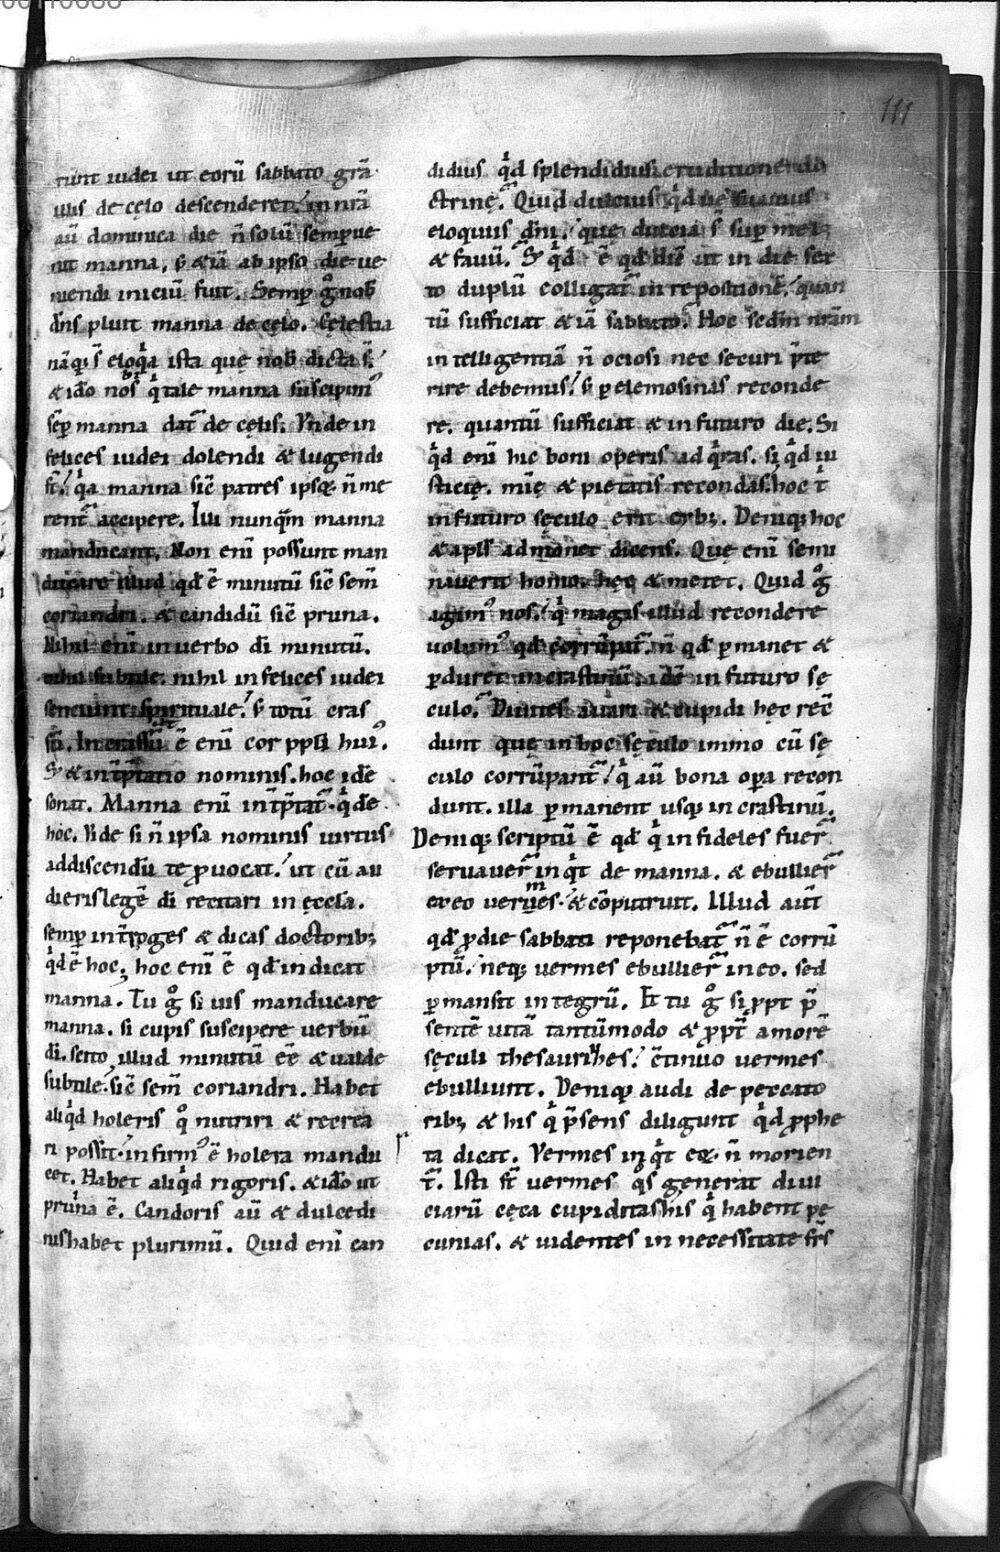 111
runt iudei ut eorũ sabbato grã
ullis de cęlo descenderet. in nrã
aũ dominica die ñ solũ semp ue
nit manna, s̄ & iã ab ipso die ue
niendi iniciũ fuit. Semp gͦ nob
dñs pluit manna de cęlo. Cęlestia
nãq; s̄ eloqͥa ista que nob dicta s̄.
& ido nos qͥ tale manna suscipimꝰ
sēp manna dat̃ de cęlis. Vnde in
felices iudei dolendi & lugendi
st̄. qͥa manna sic̄ patres ipsoꝝ ñ me
rent̃ accipere. Illi nunqͣm manna
manducant. Non enĩ possunt man
ducare illud qd̄ ē minutũ sic̄ sem̃
coriandri. & candidũ sic̄ pruna.
Nihil enĩ in uerbo dī minutũ.
nihil subtile. nihil infelices iudei
senciunt spirituale. s̄ totũ cras
sũ. Incrassatũ ē enĩ cor ppli huiꝰ.
S; & int̃p̃tatio nominis. hoc idē
sonat. Manna enĩ int̃p̃tat̃. qͥd ē
hoc. Vide si ñ ipsa nominis uirtus
addiscendũ te ꝓuocat. ut cũ au
dieris legē dī recitari in ęccla.
semp int̃roges & dicas doctorib;
qͥd ē hoc, hoc enĩ ē qd̄ indicat
manna. Tu gͦ si uis manducare
manna. si cupis suscipere uerbũ
dī. scito illud minutũ eē & ualde
subtile. sic̄ sem̃ coriandri. Habet
aliqͥd holeris qͦ nutriri & recrea
ri possit. infirmꝰ ē holera mandu
cet. Habet aliqͥd rigoris. & ido ut
pruina ē. Candoris aũ & dulcedi
nis habet plurimũ. Quid enĩ can
didius qͥd splendidius eruditione do
ctrinę. Quid dulcius qͥd ue suauius
eloquiis dñi. que dulcia s̄ sup mel
& fauũ. S; qͥd ē qd̄ diē ut in die sex
to duplũ colligat̃ in repositionē. quan
tũ sufficiat & iã sabbato. Hoc sedm nrãm
intelligentiã ñ ociosi nec securi p̄te
rire debemus. s̄ p elemosinas reconde
re. quantũ sufficiat & in futuro die. Si
qͥd enĩ hic boni operis adqͥras. si qͥd iu
sticię. mię & pietatis recondas. hoc t̄
in futuro sęculo erit cibꝰ. Deniq; hoc
& apls admonet dicens. Quę enĩ semi
nauerit homo. hęc & metet. Quid gͦ
agimꝰ nos. qͥ magis illud recondere
uolumꝰ qd̄ corrũpit̃. ñ qd̄ pmanet &
pduret in crastinũ. idē in futuro sę
culo. Diuites auari & cupidi hęc recō
dunt quę in hoc sęculo immo cũ sę
culo corrũpant̃. qͥ aũ bona opa recon
dunt. illa pmanent usq; in crastinũ.
Deniq; scriptũ ē qd̄ qͥ infideles fuer̃
seruauer̃ inqͥt de manna. & ebullier̃
ex eo uermes. & cōputruit. Illud aut̃
qd̄ ꝓ die sabbati reponebat̃ ñ ē corrũ
ptũ. neq; uermes ebullier̃ in eo. sed
pmansit integrũ. Et tu gͦ si ꝓpt p̄
sentē uitã tantũmodo & ꝓpt̃ amorē
sęculi thesaurizes. c̄tinuo uermes
ebulliunt. Deniq; audi de peccato
rib; & his qͥ p̄sens diligunt qͥd ꝓphe
ta dicat. Vermes inqͥt eoꝝ ñ morien
t̃. Isti st̄ uermes qͦs generat diui
ciarũ cęca cupiditas his qͥ habent pe
cunias. & uidentes in necessitate frs